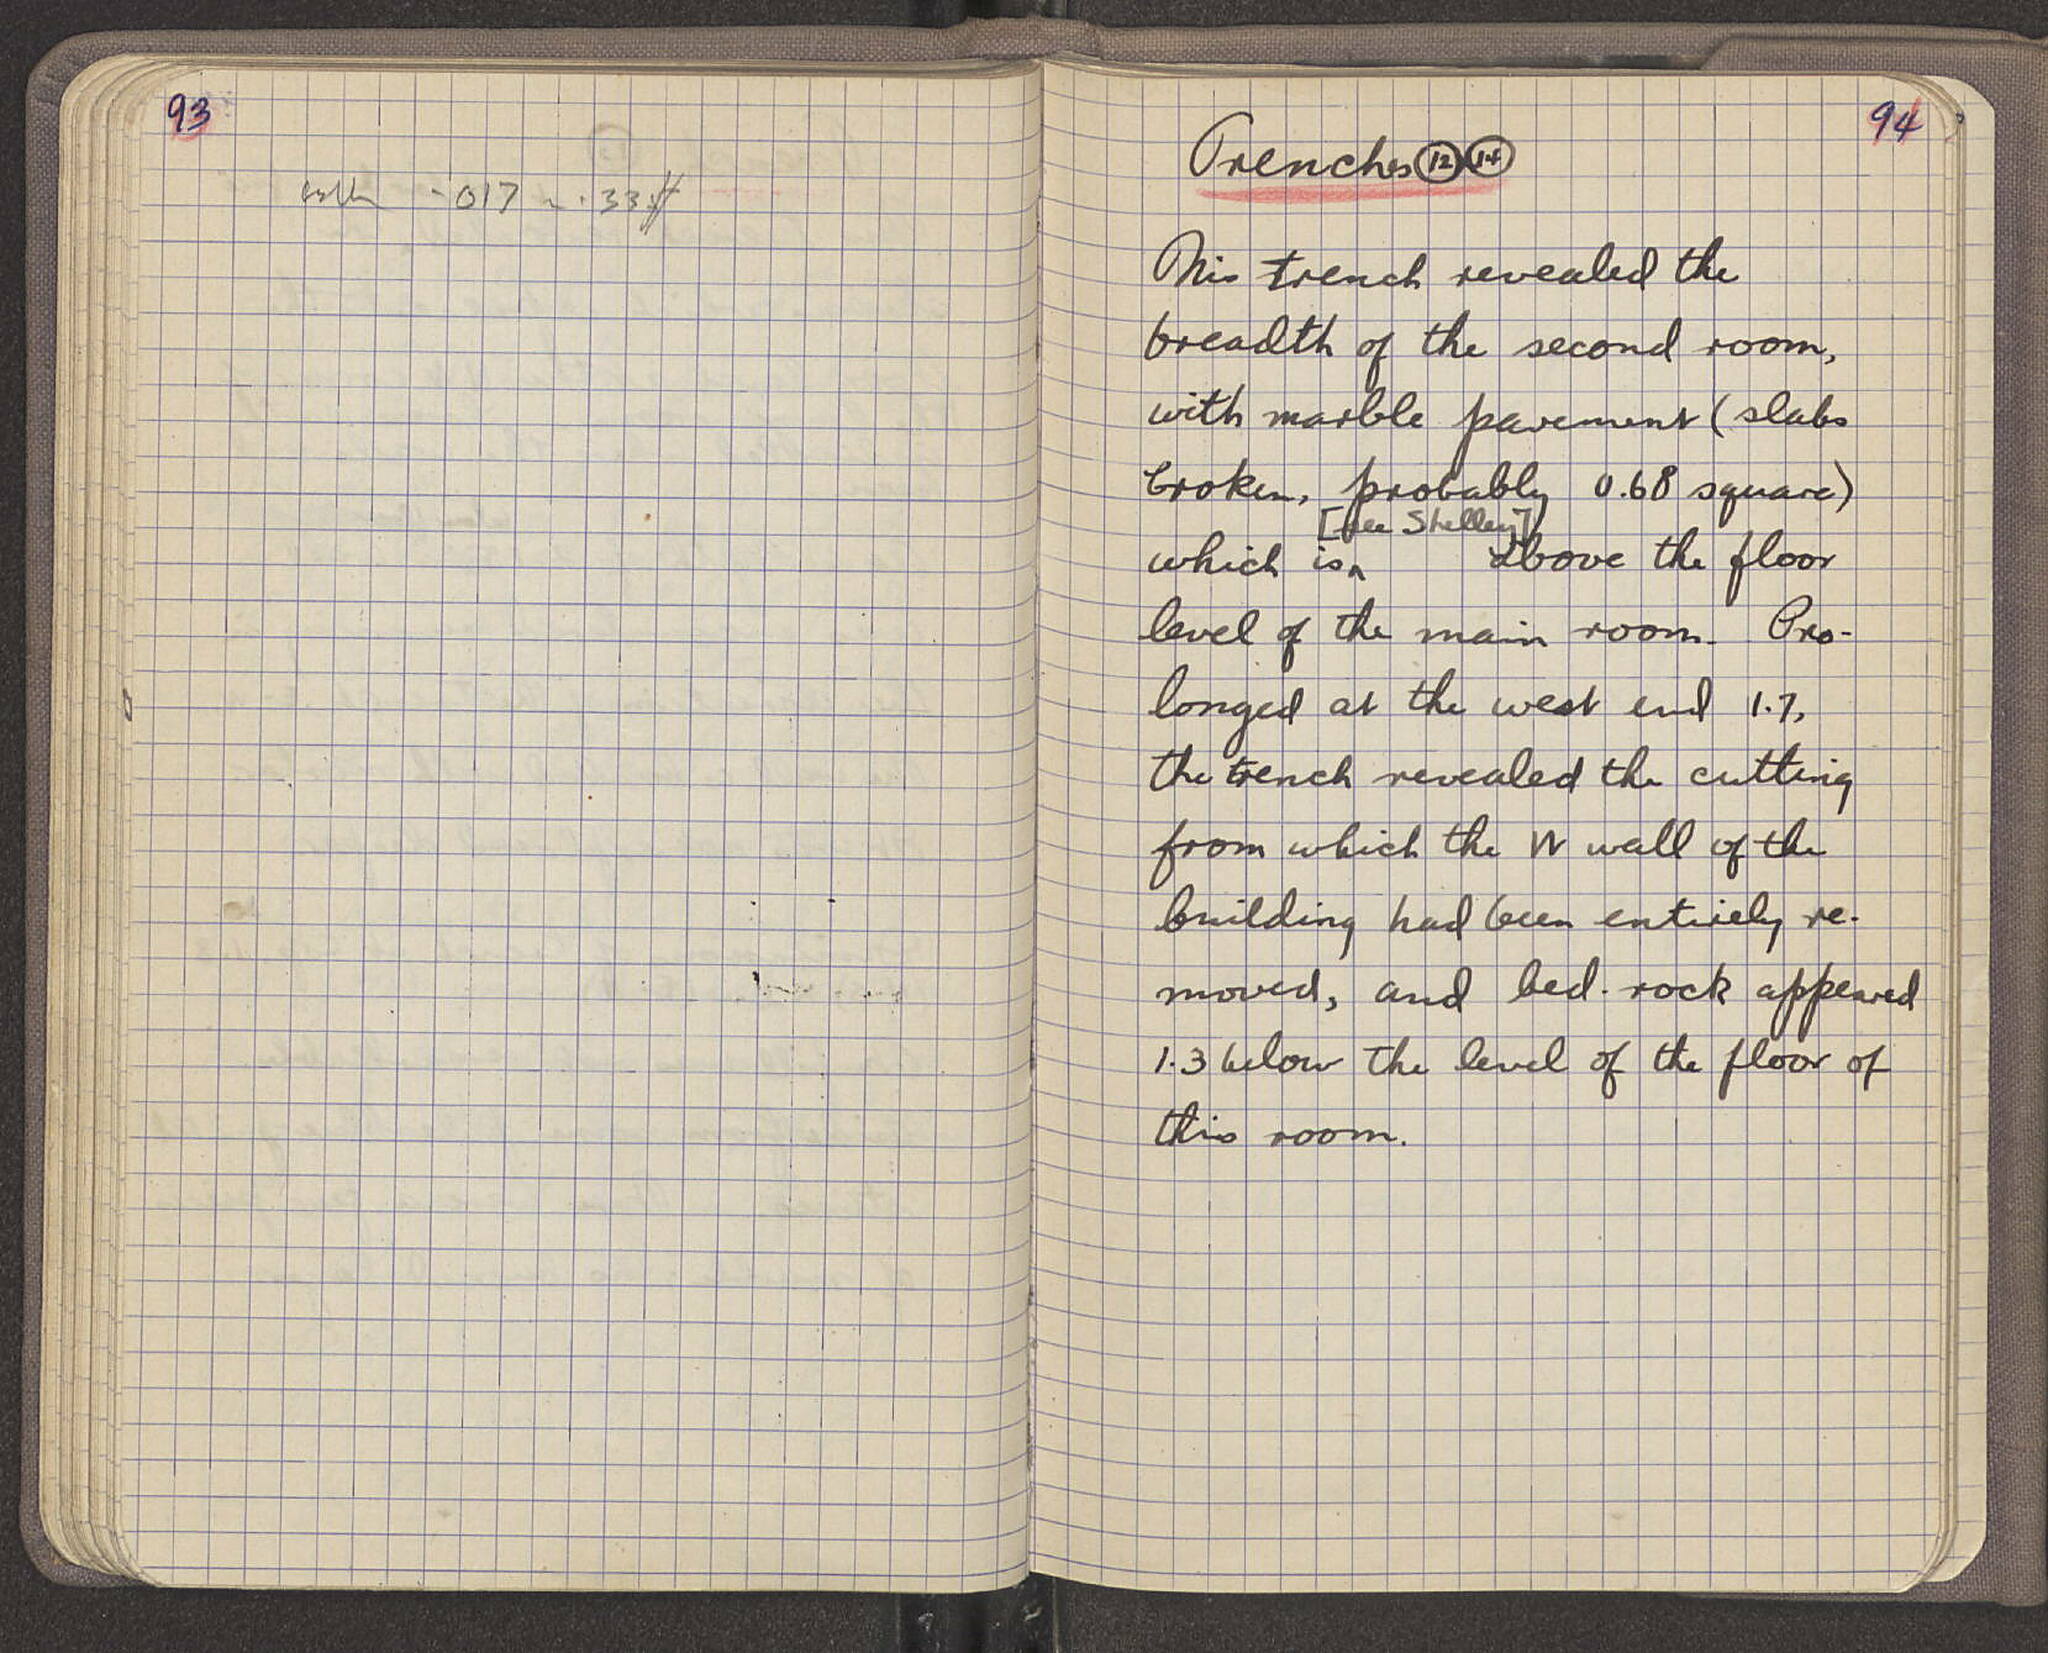 93
.017 .33
94
Trenches 12 14
This trench revealed the
breadth of the second room,
with marble pavement (slabs
broken, probably 0.68 square)
[see Shelley]
which is ^ above the floor
level of the main room. Pro-
longed at the west end 1.7,
the trench revealed the cutting
from which the W wall of the
building had been entirely re-
moved, and bed-rock appeared
1.3 below the level of the floor of
this room.